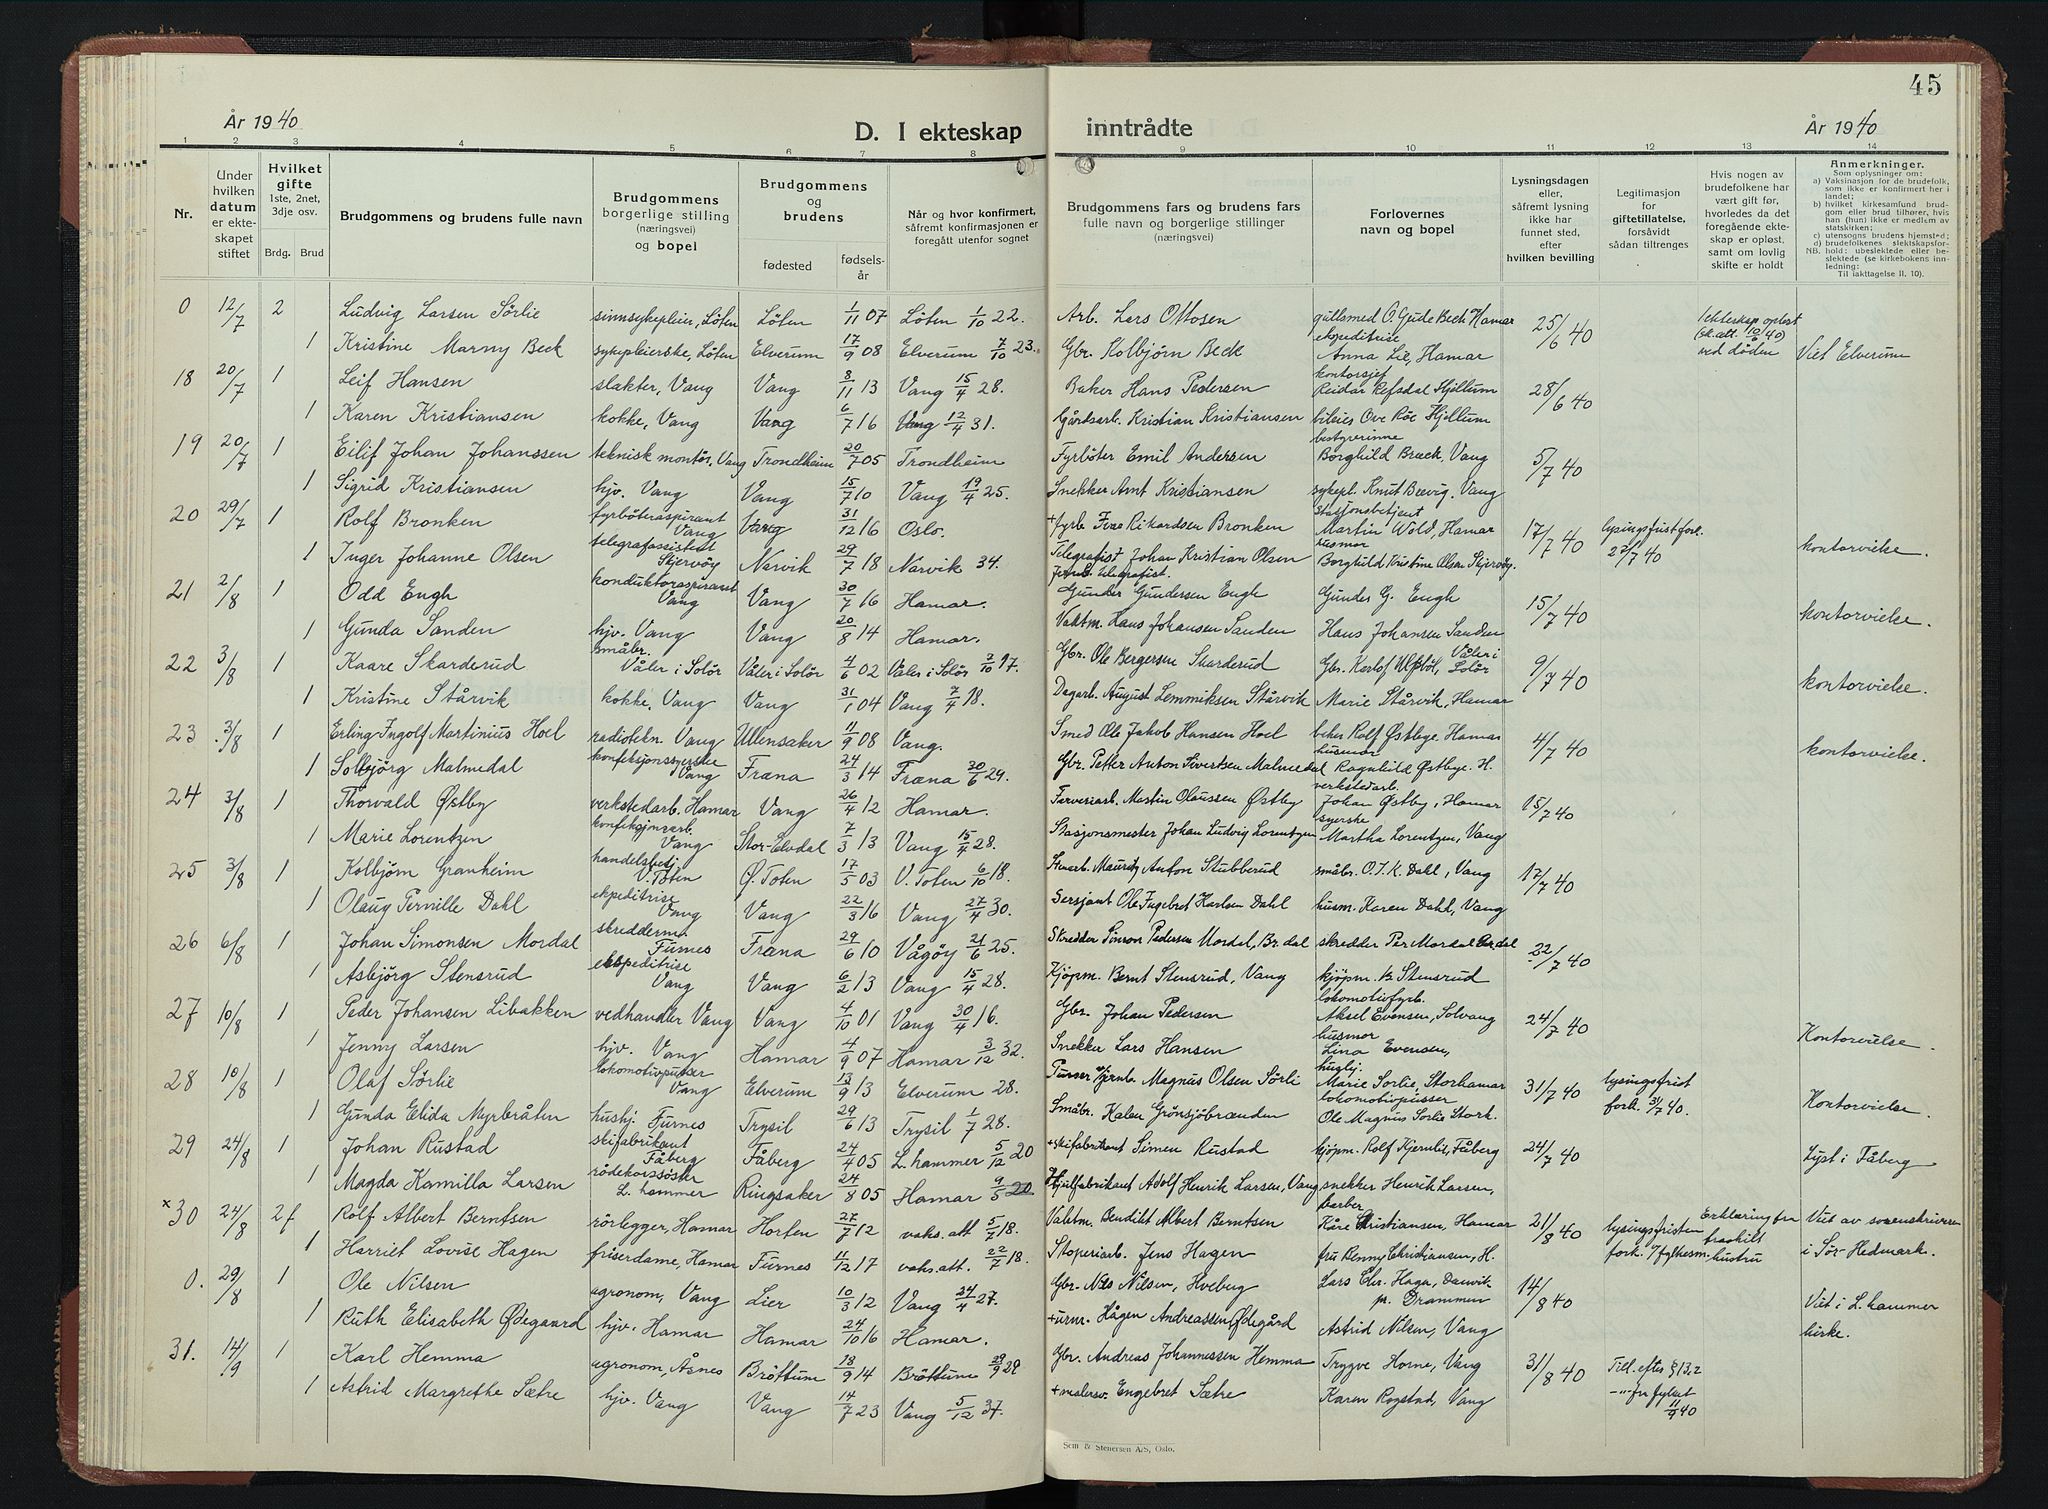 45
År 1940
D. I ekteskap inntrådte
År 1940
1 2 3 4 5 6 7 8 9 10 11 12 13 14
Nr.
Under hvilken datum er ekteskapet stiftet
Hvilket gifte 1ste, 2net, 3dje osv.
Brdg. Brud
Brudgommens og brudens fulle navn
Brudgommens borgerlige stilling (næringsvei) og bopel
Brudgommens og brudens
fødested
fødselsår
Når og hvor konfirmert, såfremt konfirmasjonen er foregått utenfor sognet
Brudgommens fars og brudens fars fulle navn og borgerlige stillinger (næringsvei)
Forlovernes navn og bopel
Lysningsdagen eller, såfremt lysning ikke har funnet sted, efter hvilken bevilling
Legitimasjon for giftetillatelse, forsåvidt sådan tiltrenges
Hvis nogen av brudefolkene har vært gift før, hvorledes da det foregående ekteskap er opløst, samt om lovlig skifte er holdt
Anmerkninger.
Som oplysninger om:
a) Vaksinasjon for de brudefolk, som ikke er konfirmert her i landet;
b) hvilket kirkesamfund brudgom eller brud tilhører, hvis han (hun) ikke er medlem av statskirken;
c) utensogns brudens hjemsted;
d) brudefolkenes slektskapsforhold: ubeslektede eller beslektede (se kirkebokens innledning:
NB. Til iakttagelse II, 10).
0 12/7 2 Ludvig Larsen Sörlie sinnsykepleier, Löten Löten 1/11 07 Löten 1/10 22. Arb. Lars Ottosen gullsmed O. Gude Beck Hamar 25/6 40 1 ekteskap oplöst (sk.att. 10/6 40) ved döden Viet Elverum
1 Kristine Marny Beck sykepleierske, Löten Elverum 17/9 08 Elverum 7/10 23. Gbr. Kolbjörn Beck ekspeditrise Anna Lie, Hamar
18 20/7 1 Leif Hansen slakter, Vang Vang 8/11 13 Vang 15/4 28. Baker Hans Pedersen kontorsjef Reidar Refsdal Hjellum 28/6 40
1 Karen Kristiansen kokke, Vang Vang 6/7 16 Vang 12/4 31. Gårdsarb. Kristian Kristiansen bileier Ove Röe Hjellum
19 20/7 1 Eilif Johan Johanssen teknisk montör, Vang Trondheim 20/7 05 Trondheim Fyrböter Emil Andersen bestyrerinne Borghild Braek, Vang 5/7 40
1 Sigrid Kristiansen hjv. Vang Vang 15/7 10 Vang 19/4 25. Snekker Arnt Kristiansen sykepl. Knut Breivig. Vang
20 29/7 1 Rolf Bronken fyrböteraspirant Vang Vang 31/12 16 Oslo. + fyrb. Rikardsen Bronken Stasjonsbetjent Martin Wold, Hamar 17/7 40 lysingsfrist fork. 22/7 40 kontorvielse.
1 Inger Johanne Olsen telegrafassistent Skjervöy Narvik 29/7 18 Narvik 34. Telegrafist Johan Kristian Olsen husmor Borghild Kristine Olsen Skjervöy.
21 2/8 1 Odd Engh konduktöraspirant Vang Vang 30/7 16 Hamar. Jernb. telegrafist. Gunder Gundersen Engh Gunder G. Engh 15/7 40 kontorvielse.
1 Gunda Sanden hjv. Vang Vang 20/8 14 Hamar. Vaktm. Hans Johansen Sanden Hans Johansen Sanden
22 3/8 1 Kaare Skarderud småbr. Våler i Solör Våler i Solör 4/6 02 Våler i Solör 7/10 17. Gbr. Ole Bergersen Skarderud Gbr. Karlof Ulfsböl, Våler i Solör 9/7 40 kontorvielse.
1 Kristine Stårvik kokke, Vang Vang 31/1 04 Vang 7/4 18. Dagarb. August Lemmiksen Stårvik Marie Stårvik, Hamar
23. 3/8 1 Erling Ingolf Martinius Hoel radiotekn. Vang Ullensaker 11/9 08 Vang. Smed Ole Jakob Hansen Hoel Rolf Östbye. Hamar 4/7 40 kontorvielse.
1 Solbjörg Malmedal konfeksjonssyerske Vang Fræna 24/3 14 Fræna 30/6 29. Gbr. Petter Anton Sivertsen Malmedal husmor Ragnhild Östbye. H.
24 3/8 1 Thorvald Østby verkstedarb. Hamar Vang 26/4 12 Hamar. Farveriarb. Martin Olaussen Østby verkstedarb. Johan Østby, Hamar 15/7 40
1 Marie Lorentzen konfeksjonsarb. Vang Stor-Elvdal 7/3 13 Vang 15/4 28. Stasjonsmester Johan Ludvig Lorentzen syerske Martha Lorentzen, Vang
25 3/8 1 Kolbjörn Granheim handelsbetj. V. Toten Ø. Toten 17/5 03 V. Toten 6/10 18. Stenarb. Mauritz Anton Stubberud småbr. O.I.K. Dahl, Vang 17/7 40
1 Olaug Perville Dahl ekspeditrise Vang Vang 22/3 16 Vang 27/4 30. Sersjant Ole Ingebret Karlsen Dahl husm. Karen Dahl, Vang
26 6/8 1 Johan Simonsen Mordal skredderm. Furnes Fræna 29/6 10 Vågöy 21/6 25. Skredder Simon Pedersen Mordal, Br.dal skredder Per Mordal 22/7 40
1 Asbjörg Stensrud ekspeditrise Vang Vang 6/2 13 Vang 15/4 28. Kjöpm. Bernt Stensrud, Vang kjöpm. B. Stensrud
27 10/8 1 Peder Johansen Libakken vedhandler Vang Vang 4/10 01 Vang 30/4 16. Gbr. Johan Pedersen lokomotivfyrb. Aksel Evensen, Solvang 24/7 40 Kontorvielse.
1 Jenny Larsen hjv. Vang Hamar 4/9 07 Hamar 3/12 32. Snekker Lars Hansen husmor Lina Evensen,
28 10/8 1 Olaf Sörlie lokomotivpusser Vang Elverum 13/9 13 Elverum 28. Pusser v/jernb. Magnus Olsen Sörli huslj. Marie Sorlie, Storhamar 31/7 40 lysingsfrist fork. 31/7 40. Kontorvielse.
1 Gunda Elida Myrbråten hushj. Furnes Trysil 29/6 13 Trysil 1/7 28. Småbr. Kalen Grönsjöbrænden lokomotivpusser Ole Magnus Sorlie Stork.
29 24/8 1 Johan Rustad skifabrikant Fåberg Fåberg 24/4 05 L. hammer 5/12 20 + skifabrikant Simen Rustad kjöpm. Rolf Kjernlie, Fåberg 24/7 40 Lyst i Fåberg
1 Magda Kamilla Larsen rödekorssöster L. hammer Ringsaker 24/8 05 Hamar 9/5 20 Hjulfabrikant Adolf Henrik Larsen, Vang snekker Henrik Larsen,
x30 24/8 2f Rolf Albert Berntsen rörlegger, Hamar Horten 27/7 12 vaks.att. 5/7 18. Vaktm. Bendikt Albert Berntsen barber Kåre Christiansen, Hamar 21/8 40 lysingsfristen fork. v/fylkesm. Erklæring fra fraskilt hustru Viet av sorenskriveren i Sör-Hedmark.
1 Harriet Lovise Hagen friserdame, Hamar Furnes 11/12 17 vaks.att. 22/7 18. Stoperiarb. Jens Hagen fru Renny Christiansen, H.
0. 29/8 1 Ole Nilsen agronom, Vang Lier 10/3 12 Vang 24/4 27. Gbr. Nils Nilsen, Hvebug Lars Chr. Haga, Danvik pr. Drammen 14/8 40 Viet i L. hammer kirke.
1 Ruth Elisabeth Ødegaard hjv. Hamar Hamar 24/10 16 Hamar. + urm. Hågen Andreassen Ødegård Astrid Nilsen, Vang
31. 14/9 1 Karl Hemma agronom, Åsnes Bröttum 18/9 14 Bröttum 29/9 29 Gbr. Andreas Johannessen Hemma Trygve Horne, Vang 31/8 40 Till. efter § 13.2 -"- fra fylket 11/9 40
1 Astrid Margrethe Sætre hjv. Vang Vang 14/7 23 Vang 5/12 37. + malersv. Engebret Sætre Karen Rogstad, Vang
Sem & Stenersen A/S, Oslo.